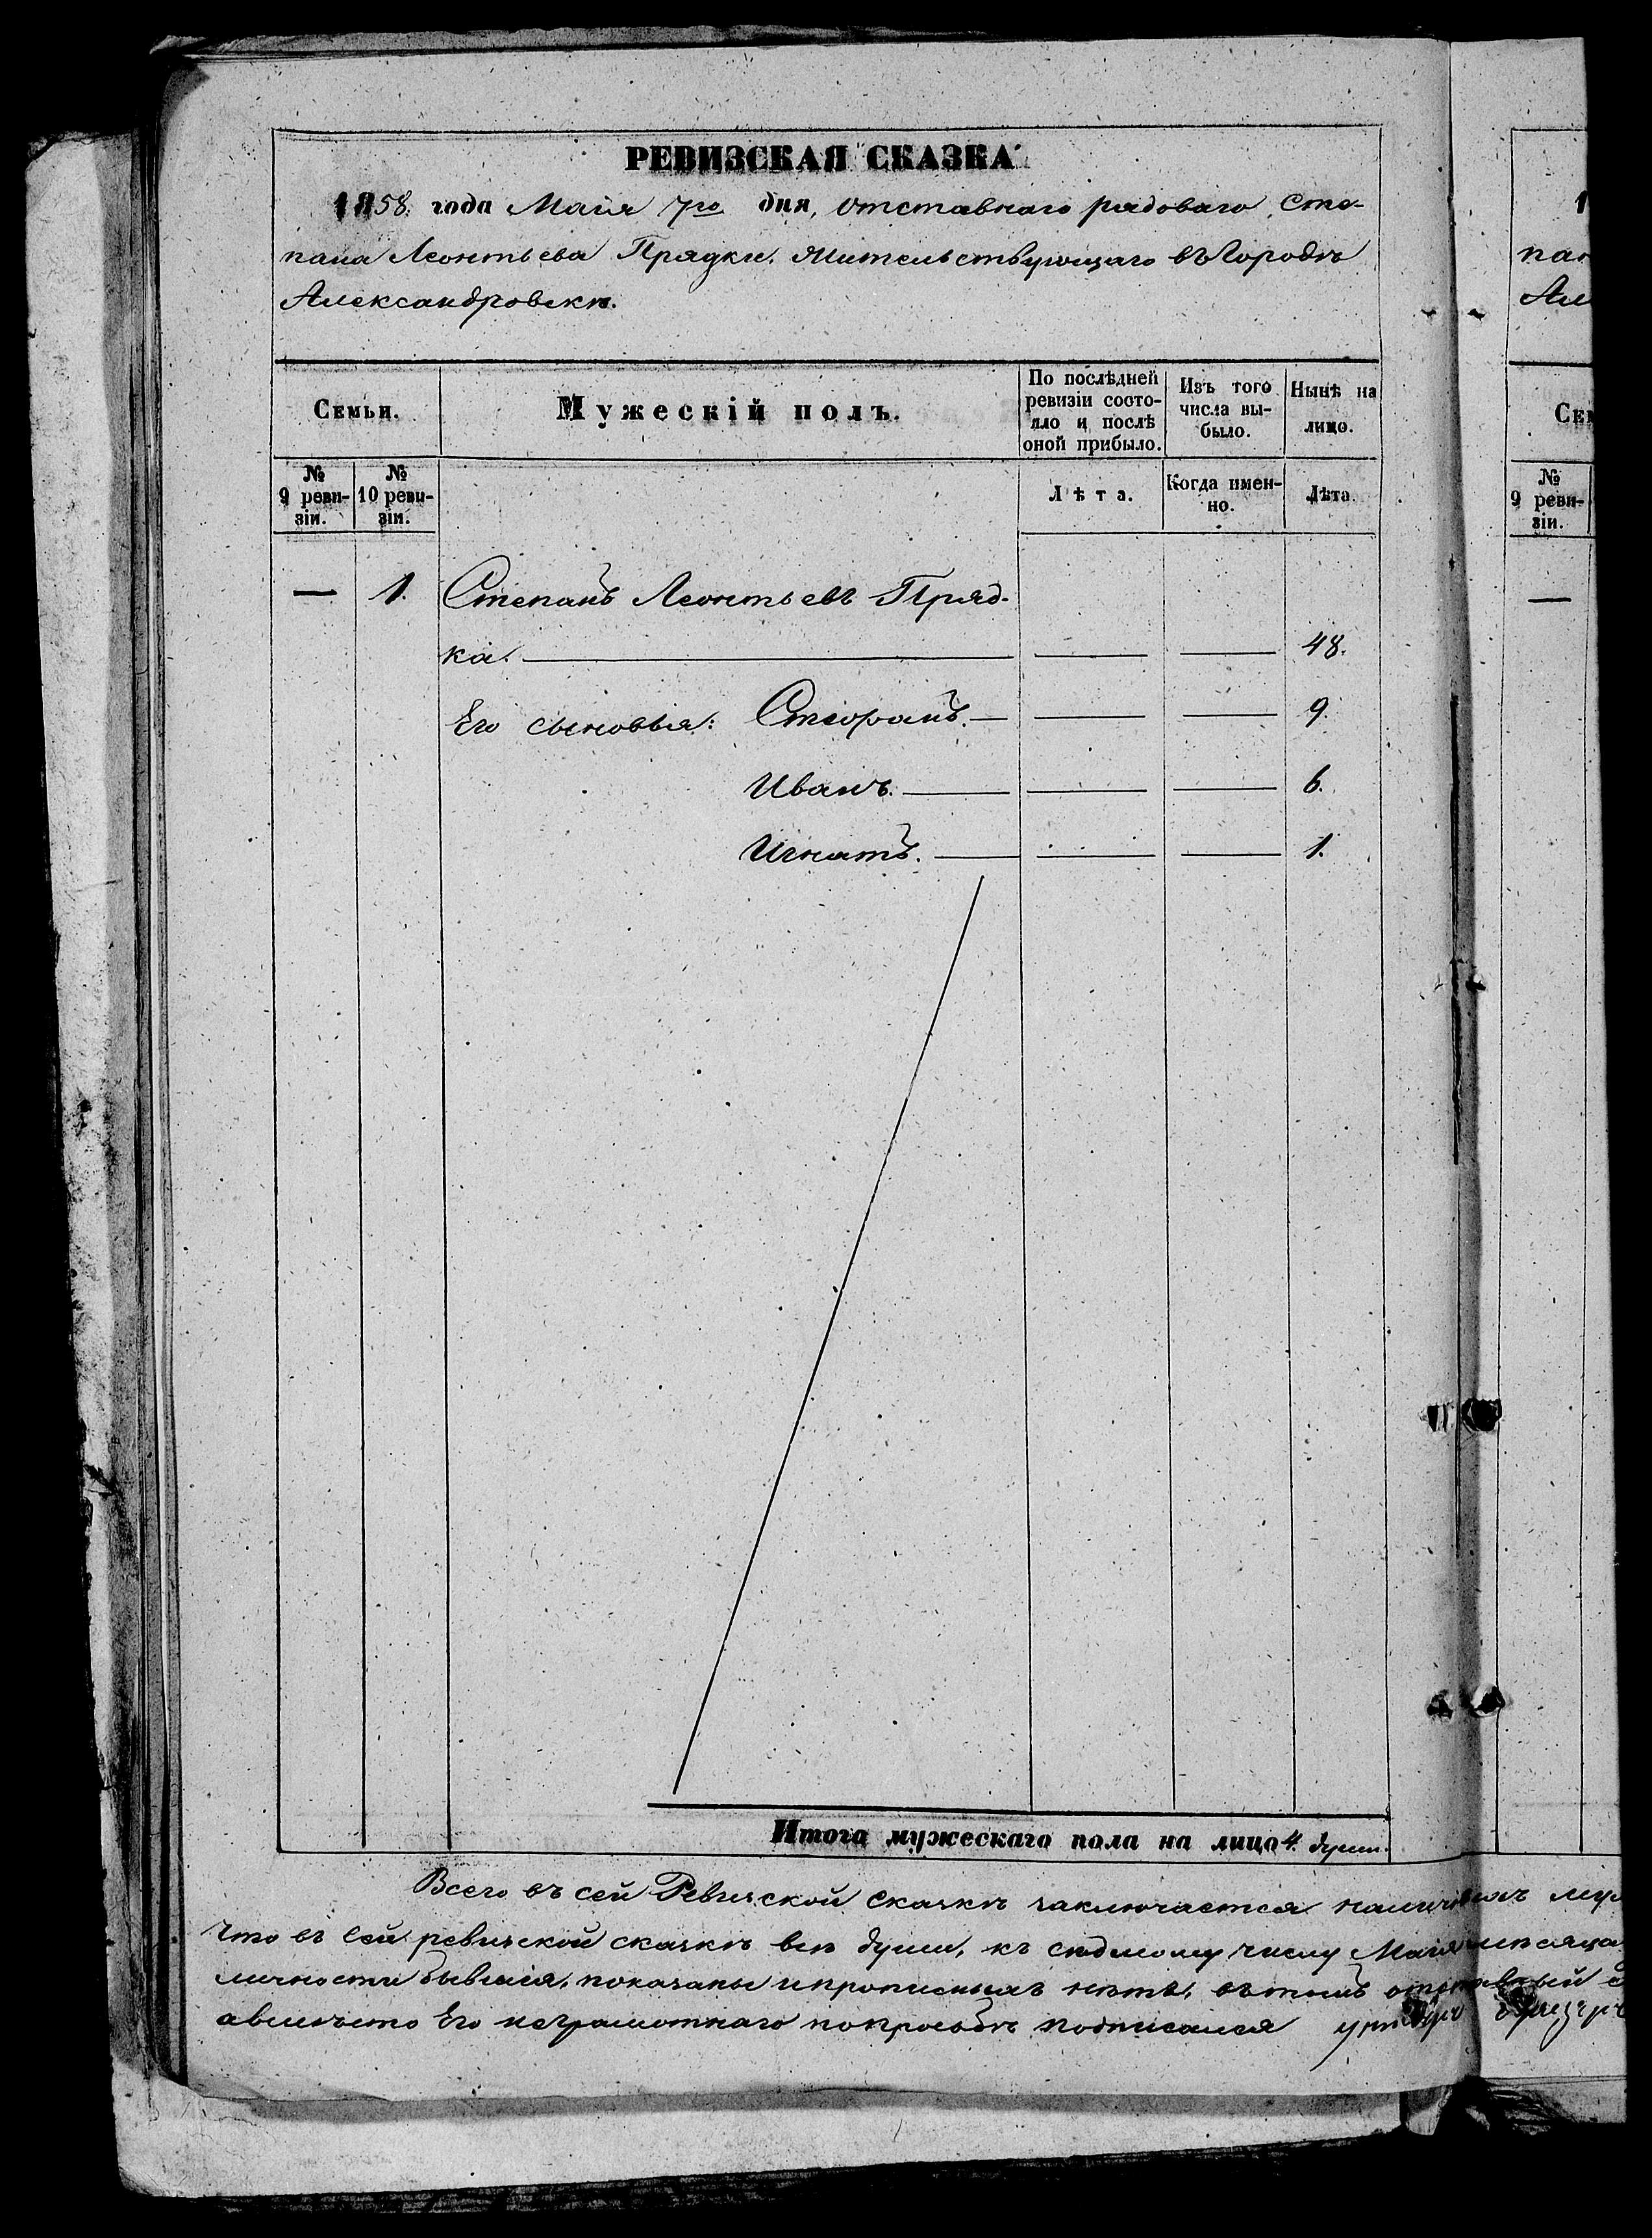 РЕВИЗСКАЯ СКАЗКА
1858. года Маія 7го дня, отставнаго рядоваго Сте-
пана Леонтьева Прядки. Жительствующаго въ Городѣ
Александровскѣ.
Семьи.
Мужескій полъ.
По послѣдней ревизіи состо-
яло и послѣ оной прибыло.
Изъ того числа вы-
было.
Нынѣ на лицо.
№ 9 реви-
зіи.
№ 10 реви-
зіи.
Лѣта.
Когда имен-
но.
Лѣта.
— 1. Степанъ Леонтьевъ Пряд-
ка. — — — 48.
Его сыновья: — — — 9.
Иванъ. — — — 6.
Игнатъ. — — — 1.
Итога мужескаго пола на лицо 4. души.
Всего въ сей Ревизской сказкѣ заключается
Что въ сей ревизской сказкѣ всѣ души, къ седьмому числу Маія мѣсяца
личности бывшія, показаны и прописныхъ нѣтъ, въ томъ
а вмѣсто его неграмотнаго по просьбѣ подписался
1
пан
Але
Сем
№ 9 реви-
зіи.
—